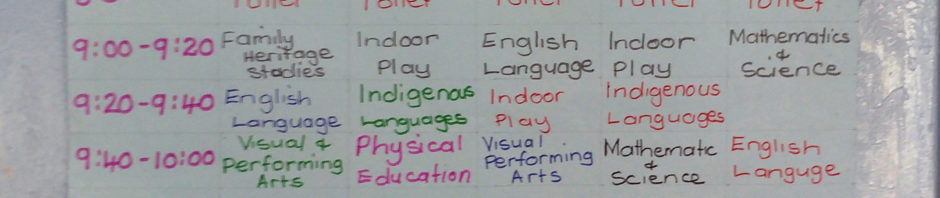 Toilet Toilet Toilet Toilet Toilet
9:00-9:20 Family Heritage Studies Indoor Play English Language Indoor Play Mathematics & Science
9:20-9:40 English Language Indigenous Languages Indoor Play Indigenous Languages
9:40-10:00 Visual & Performing Arts Physical Education Visual Performing Arts Mathematic & Science English Languge